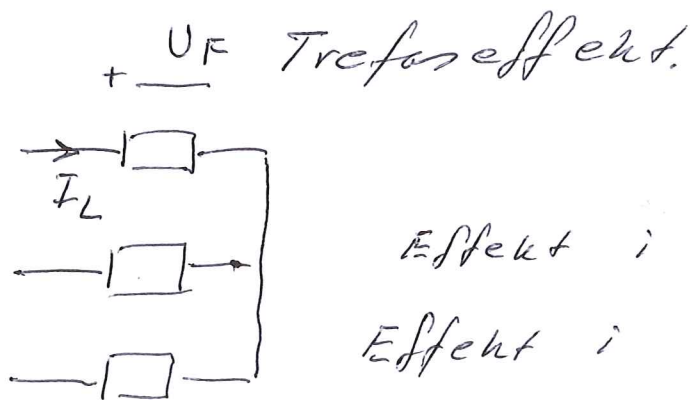 U_F Trefaseffekt.
+ —
I_L
Effekt i
Effekt i